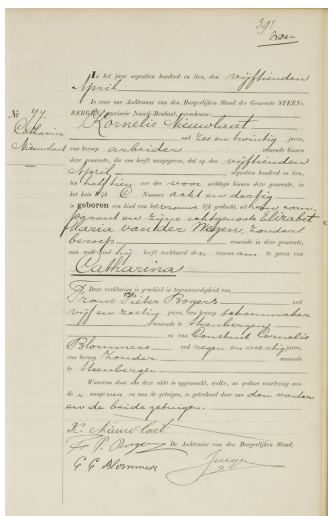 391
In het jaar negentien honderd en tien, den vijftienden
April
is voor ons Ambtenaar van den Burgerlijken Stand der Gemeente STEEN-
BERGEN, provincie Noord-Brabant, verschenen:
No 77
Catharina
Nieuwlaat
Kornelis Nieuwlaat
oud zes en twintig jaren,
van beroep arbeider wonende binnen
deze gemeente, die ons heeft aangegeven, dat op den vijftienden
April negentien honderd en tien,
ten half tien ure des voor middags binnen deze gemeente, in
het huis Wijk C Nummer acht en dertig
is geboren een kind van het vrouwelijk geslacht, uit hem com-
parant en zijne echtgenoote Elizabet
Maria van der Wegen, zonder
beroep wonende in deze gemeente,
aan welk kind hij heeft verklaard den naam te geven van
Catharina
Deze verklaring is geschied in tegenwoordigheid van
Frans Pieter Bogers oud
vijf en zestig jaren, van beroep schoenmaker
wonende te Steenbergen
en van Constant Cornelis
Blommers oud negen en veertig jaren,
van beroep zonder wonende
te Steenbergen
Waarvan door ons deze akte is opgemaakt, welke, na gedane voorlezing aan
de aangever en aan de getuigen, is geteekend door ons den vader
en de beide getuigen.
K. Nieuwlaat
F. P. Bogers
De Ambtenaar van den Burgerlijken Stand,
C C Blommers